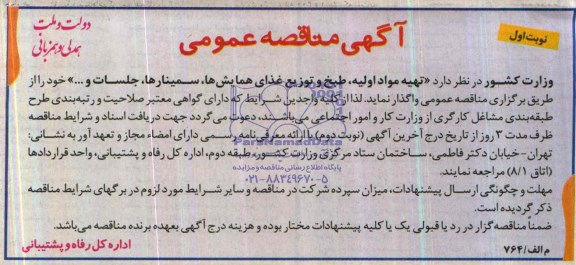 دولت و ملت
همدلی و همزبانی
آگهی مناقصه عمومی
نوبت اول
وزارت کشور در نظر دارد «تهیه مواد اولیه، طبخ و توزیع غذای همایش‌ها، سمینارها، جلسات و ...» خود را از
طریق برگزاری مناقصه عمومی واگذار نماید. لذا از کلیه واجدین شرایط که دارای گواهی معتبر صلاحیت و رتبه‌بندی طرح
طبقه‌بندی مشاغل کارگری از وزارت کار و امور اجتماعی می‌باشند، دعوت می‌گردد جهت دریافت اسناد و شرایط مناقصه
ظرف مدت ۳ روز از تاریخ درج آخرین آگهی (نوبت دوم) با ارائه معرفی‌نامه رسمی دارای امضاء مجاز و تعهدآور به نشانی:
تهران- خیابان دکتر فاطمی، ساختمان ستاد مرکزی وزارت کشور، طبقه دوم، اداره کل رفاه و پشتیبانی، واحد قراردادها
(اتاق ۸/۱) مراجعه نمایند.
مهلت و چگونگی ارسال پیشنهادات، میزان سپرده شرکت در مناقصه و سایر شرایط مورد لزوم در برگهای شرایط مناقصه
ذکر گردیده است.
ضمناً مناقصه‌گزار در رد یا قبولی یک یا کلیه پیشنهادات مختار بوده و هزینه درج آگهی بعهده برنده مناقصه می‌باشد.
م الف/۷۶۴
اداره کل رفاه و پشتیبانی
ParsNamadData
پایگاه اطلاع رسانی مناقصه و مزایده
۰۲۱-۸۸۳۴۹۶۷۰-۵